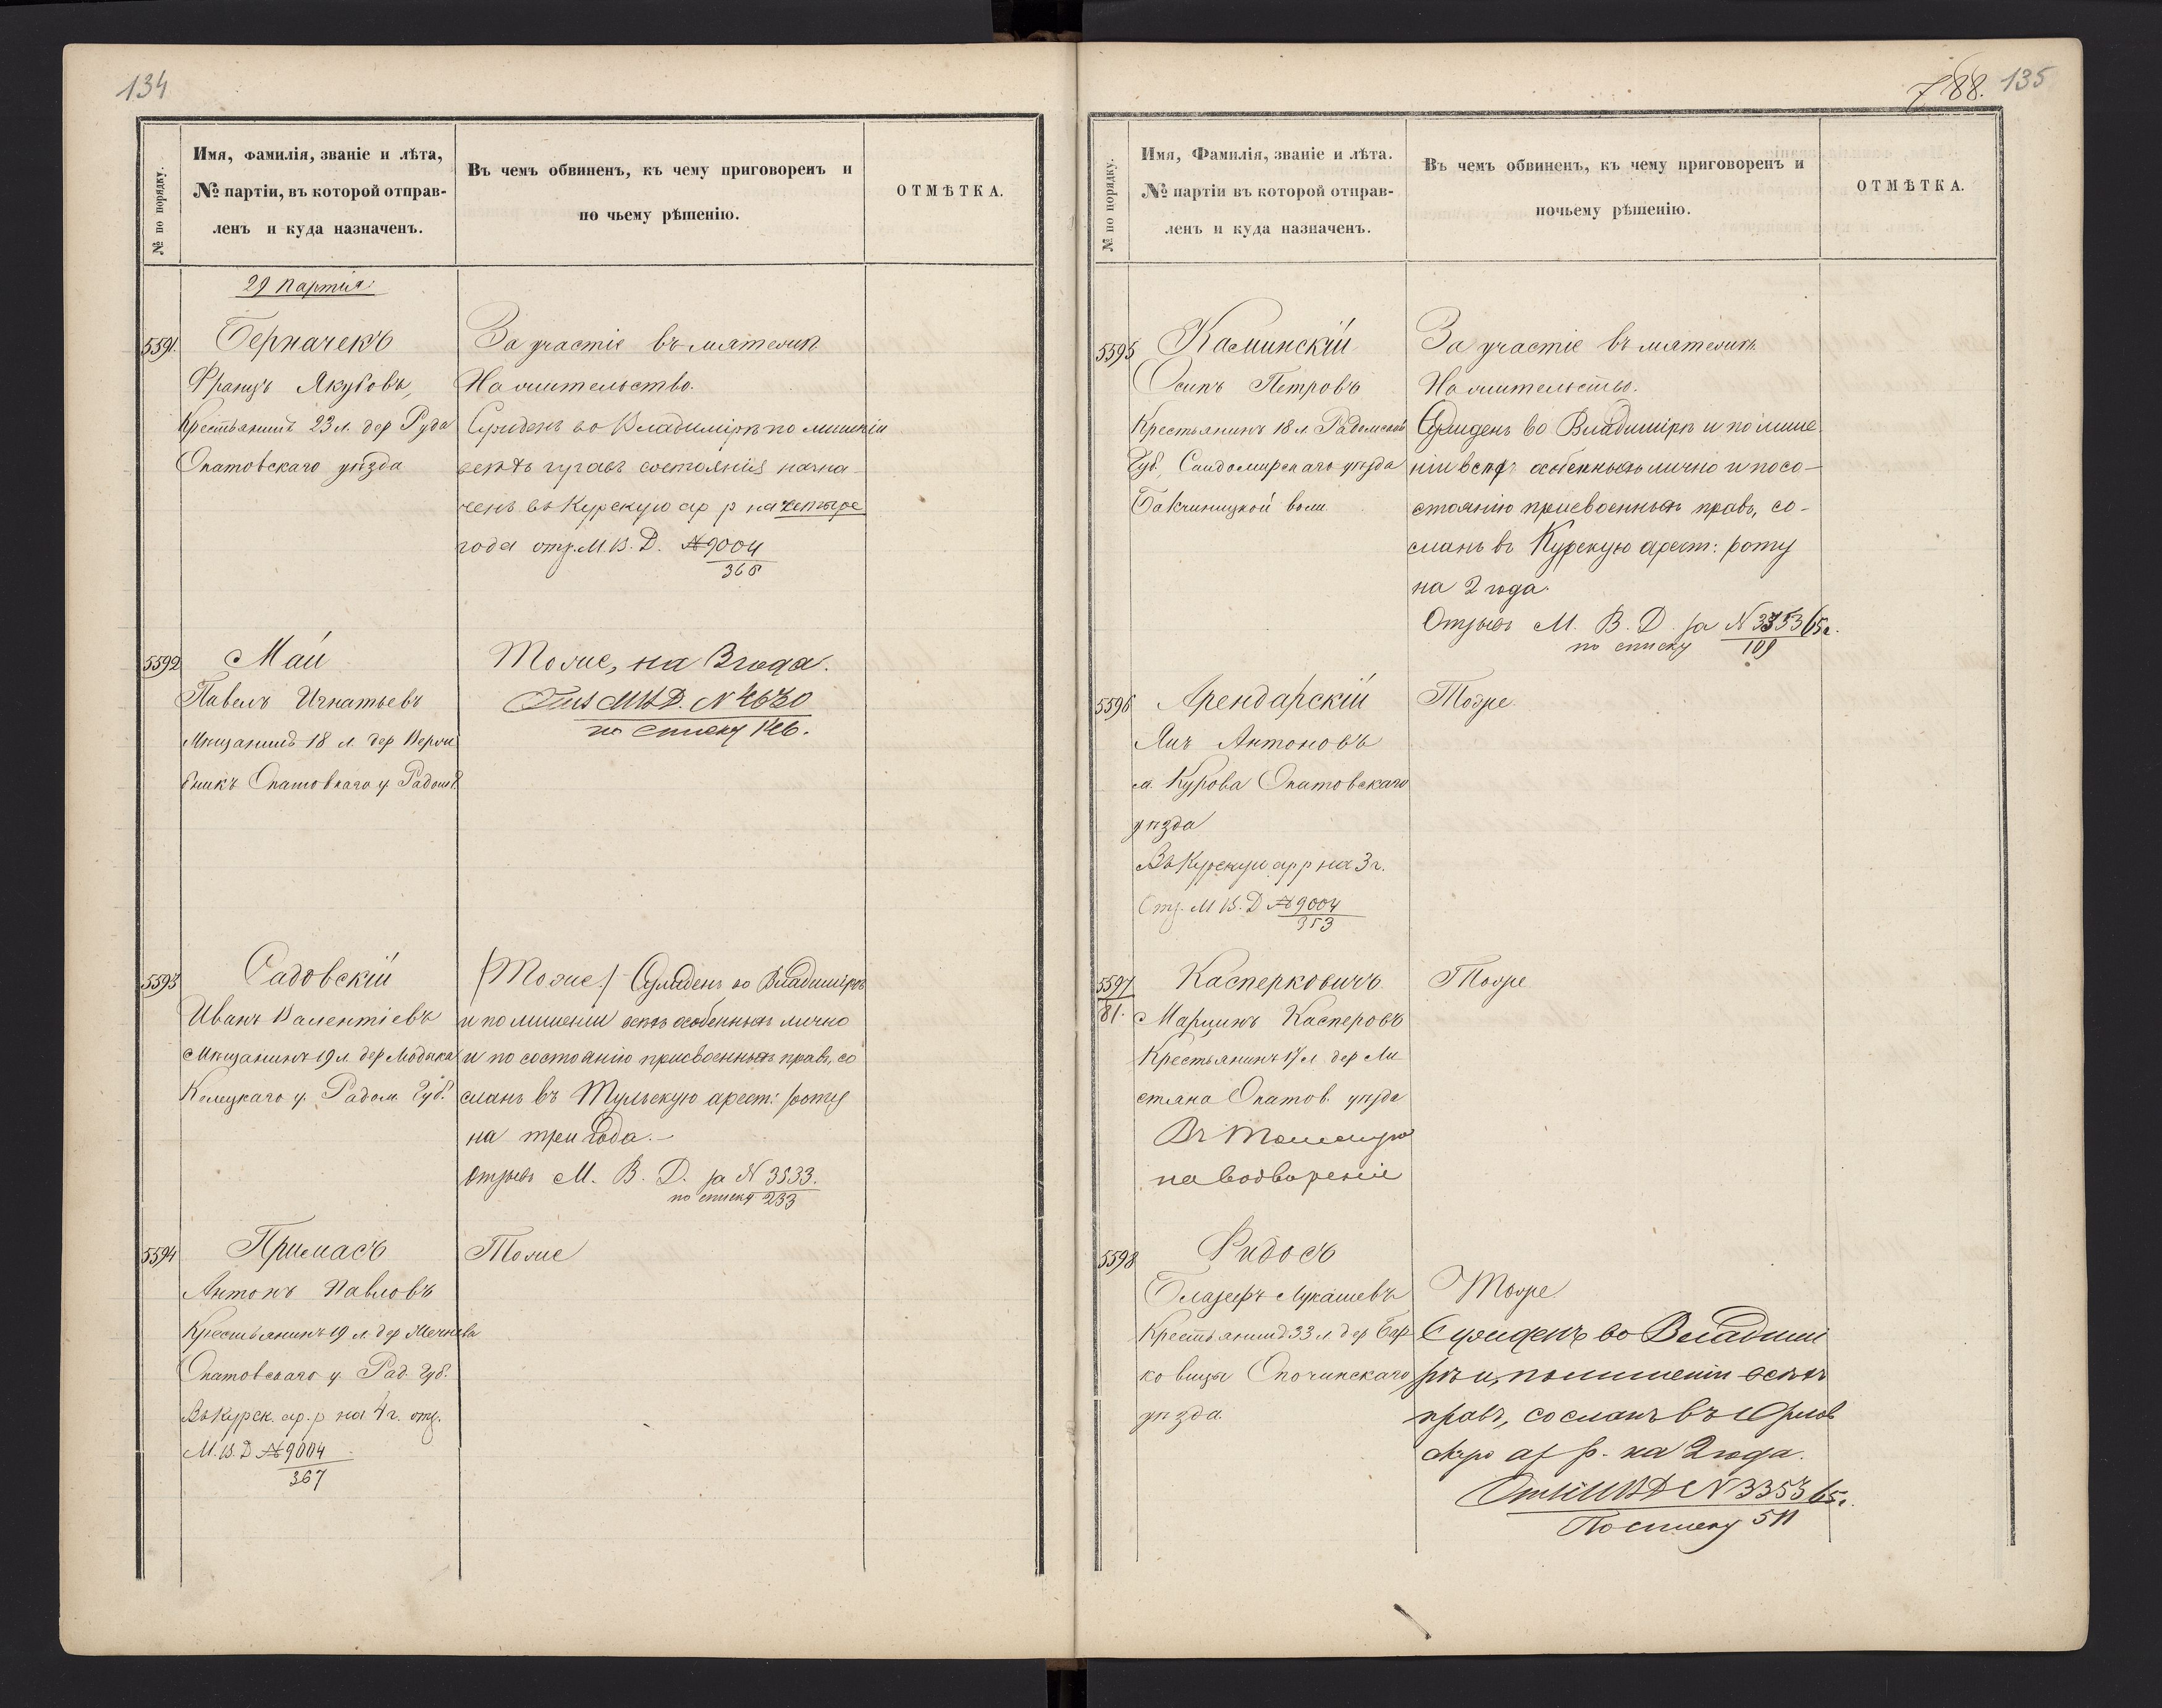 134
№ по порядку.
Имя, фамилія, званіе и лѣта,
№ партіи, въ которой отправ-
ленъ и куда назначенъ.
Въ чемъ обвиненъ, къ чему приговоренъ и
по чьему рѣшенію.
ОТМѢТКА.
29 партія
5591.
Берначекъ
Францъ Якубовъ,
Крестьянинъ 23 л. дер Руда
Опатовскаго уѣзда
За участіе въ мятежѣ
На жительство.
Сужденъ во Владимірѣ по лишеніи
всѣхъ правъ состоянія назна-
ченъ въ Курскую ар р на четыре
года отз. М. В. Д. №9004
368
5592
Май
Павелъ Игнатьевъ
Мѣщанинъ 18 л. дер Верж
бникъ Опатовскаго у Радом
Тоже, на 3 года.
Отз МВД. N 4630
по списку 146.
5593
Садовскій
Иванъ Валентіевъ
Мѣщанинъ 19 л. дер
Келецкаго у. Радом. Губ.
(Тоже) Сужденъ во Владимірѣ
и по лишеніи всѣхъ особенныхъ лично
и по состоянію присвоенныхъ правъ, со
сланъ въ Тульскую арест: роту
на три года.-
Отзывъ М. В. Д. за N 3533.
по списку 233
5594
Примасъ
Антонъ Павловъ
Крестьянинъ 19 л. дер
Опатовскаго у. Рад. Губ.
Въ Курск. ар. р на 4 г. отз.
М. В. Д №9004
367
Тоже
788. 135
№ по порядку.
Имя, Фамилія, званіе и лѣта.
№ партіи въ которой отправ-
ленъ и куда назначенъ.
Въ чемъ обвиненъ, къ чему приговоренъ и
почьему рѣшенію.
ОТМѢТКА.
5595
Каминскій
Осипъ Петровъ
Крестьянинъ 18 л. Радомской
Губ. Сандомирскаго уѣзда
За участіе въ мятежѣ
На жительство.
Сужденъ во Владимірѣ и по лише
ніи всѣхъ особенныхъ лично и по со-
стоянію присвоенныхъ правъ, со-
сланъ въ Курскую арест: роту
на 2 года.
Отзывъ М. В. Д. за N 3353 65 г.
по списку 109
5596
Арендарскій
Янъ Антоновъ
м. Курова Опатовскаго
уѣзда
Въ Курскую ар р на 3 г.
Отз. М В. Д №9004
353
Тоже.
5597
81.
Касперковичъ
Марцинъ Касперовъ
Крестьянинъ 17 л дер Ми
стяка Опатов. уѣзда
Въ Томскую
на водвореніе
Тоже
5598
Ридосъ
Блазефъ Лукашевъ
Крестьянинъ 33 л дер Бар
ковицы Опочинскаго
уѣзда.
Тоже
Сужденъ во Владимі
рѣ и, по лишеніи всѣхъ
правъ, сосланъ въ Орлов
скую ар р. на 2 года.
Отз МВД N 3353 65 г.
По списку 511